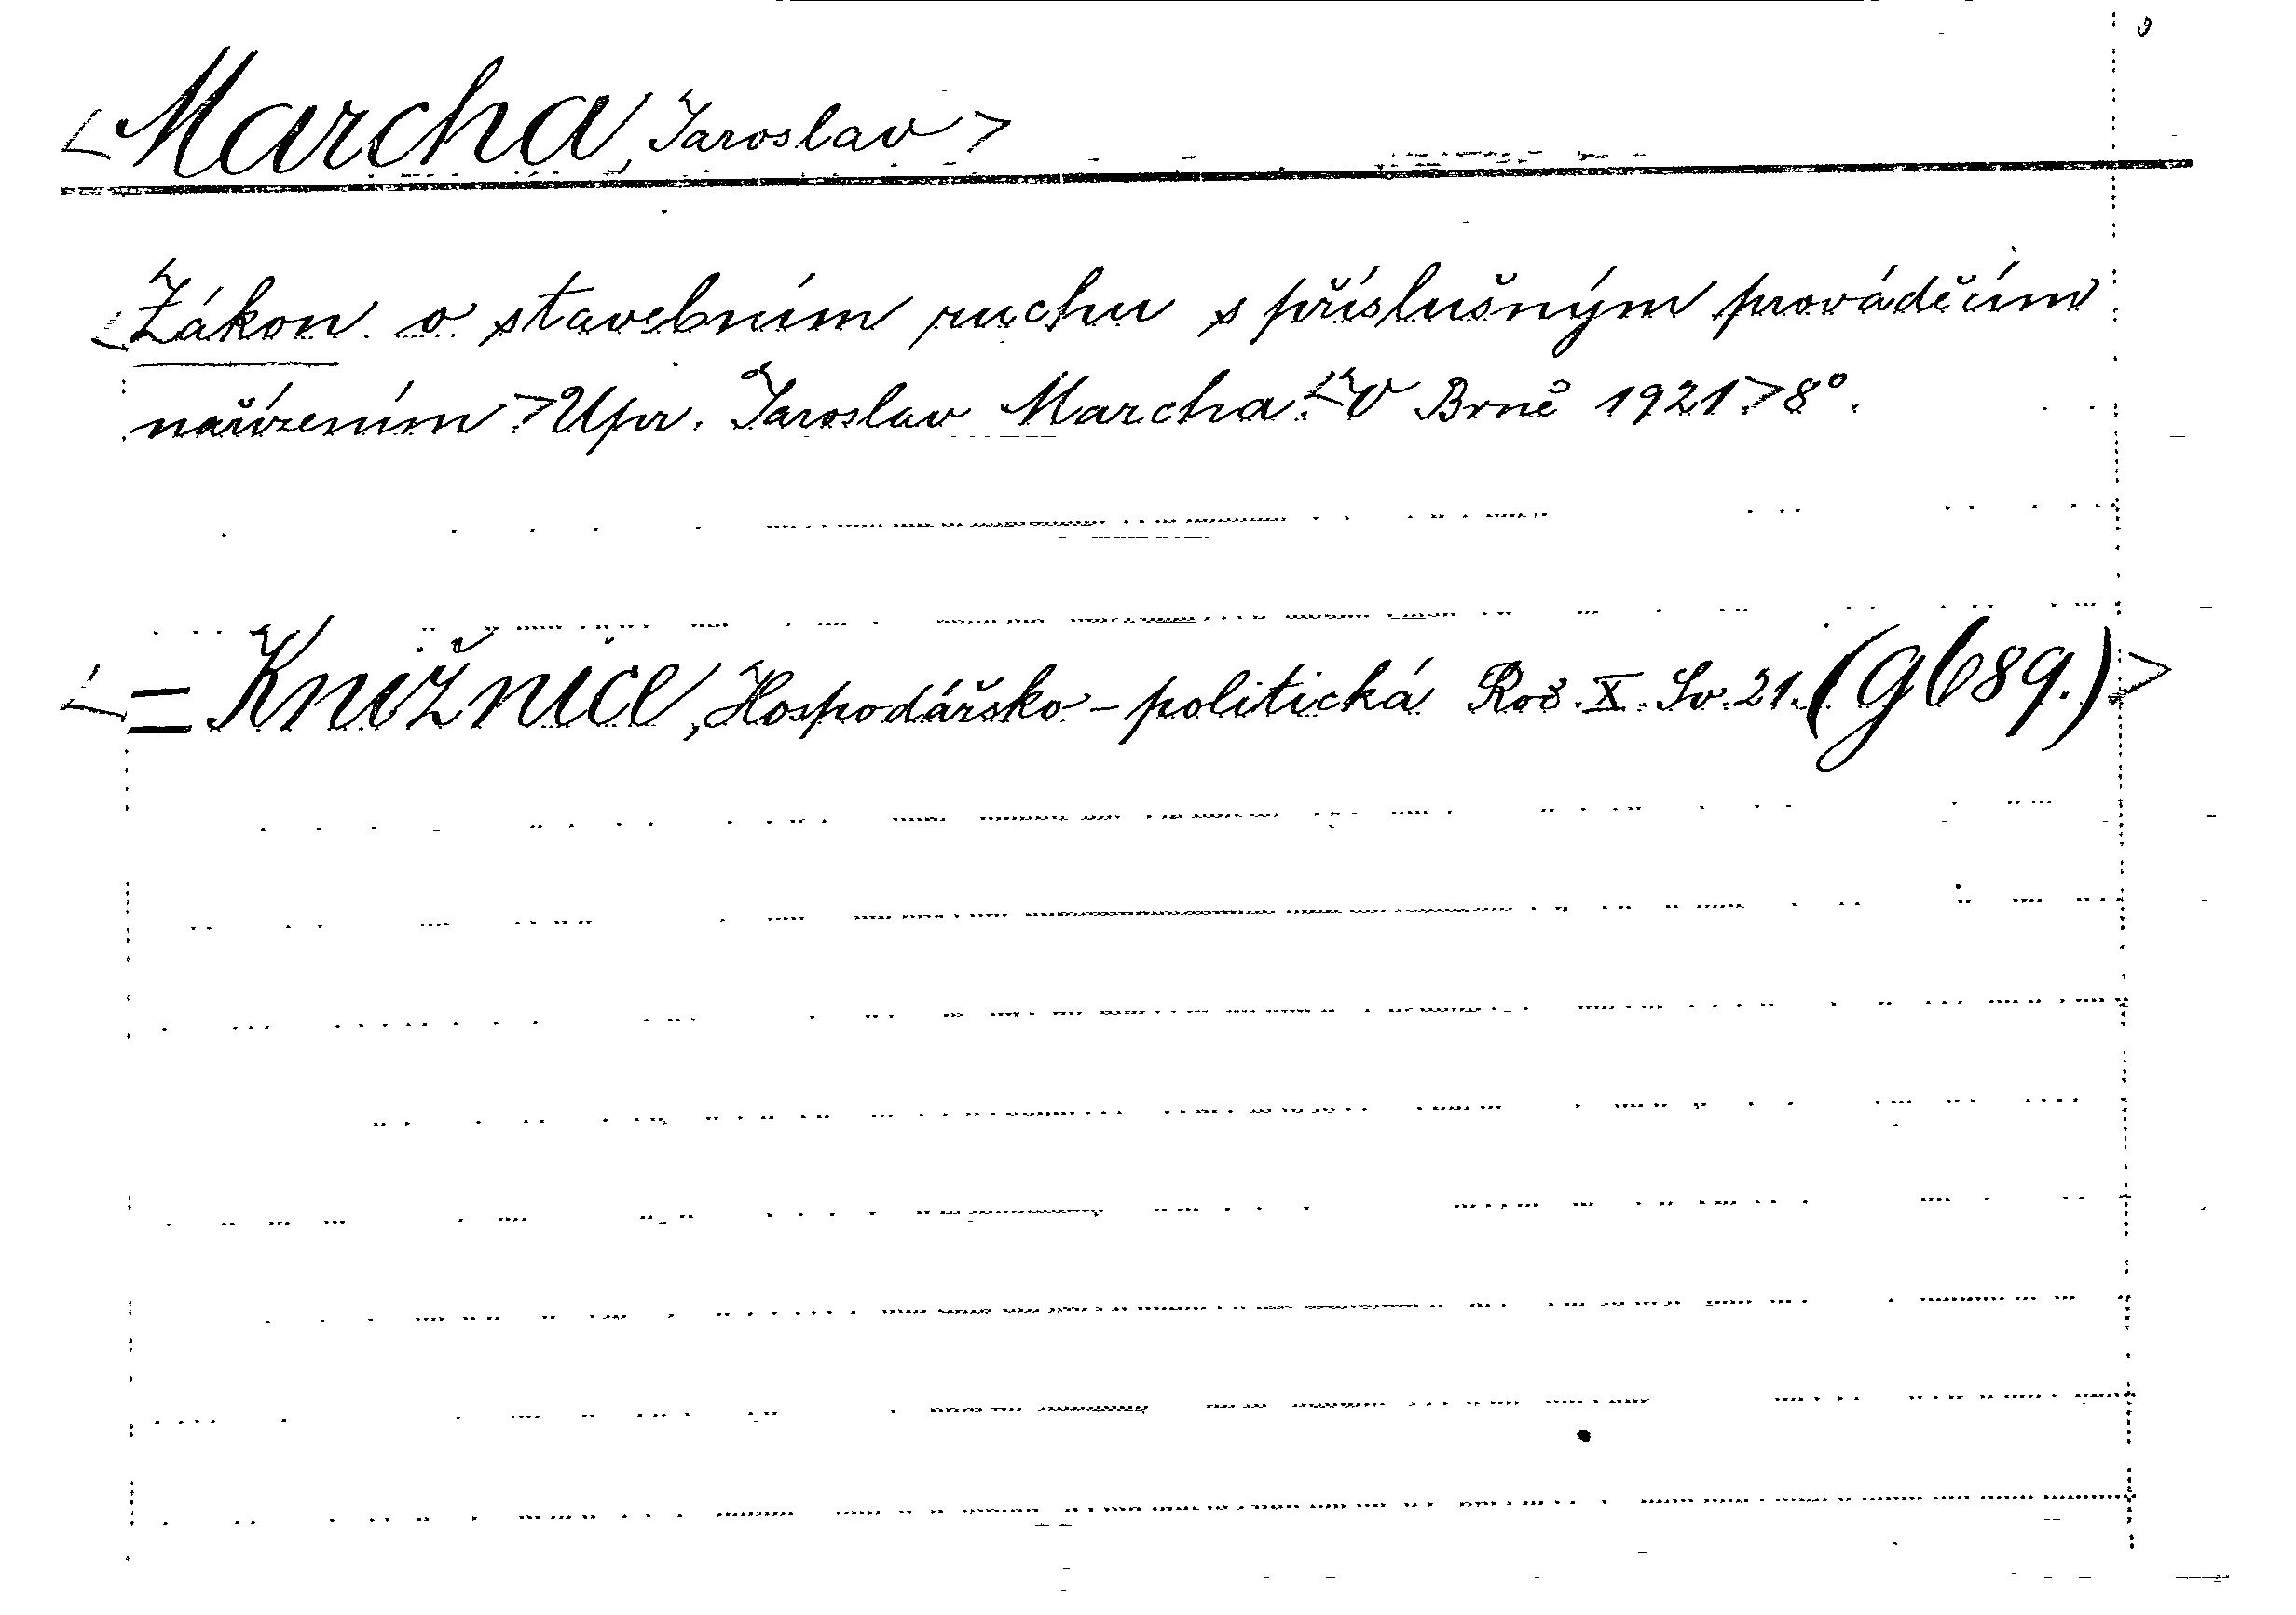 <Marcha, Jaroslav>
<Zákon o stavebním ruchu s příslušným prováděcím
nařízením.> Upr. Jaroslav Marcha. <V Brně 1921.> 8°.
<= Knižnice, Hospodářsko-politická Roč. X. Sv. 21. (g 689.)>